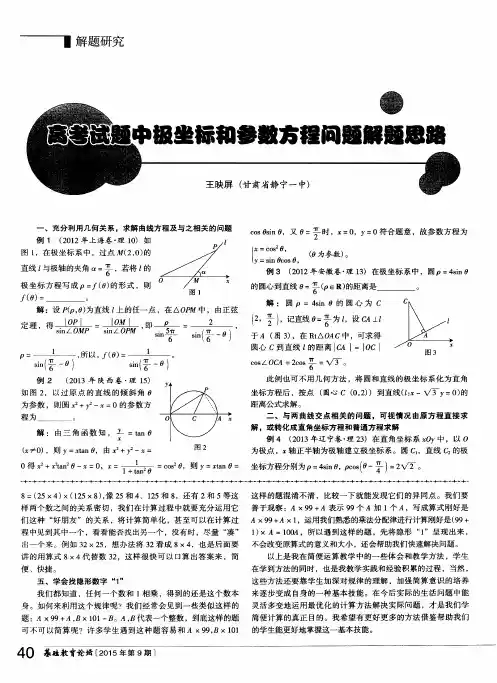 解题研究
高考试题中极坐标和参数方程问题解题思路
王映屏（甘肃省静宁一中）
一、充分利用几何关系，求解曲线方程及与之相关的问题
例 1 （2012 年上海卷·理 10）如
图 1，在极坐标系中，过点 M(2,0)的
直线 l 与极轴的夹角 α=π/6，若将 l 的
极坐标方程写成 ρ=f(θ)的形式，则
f(θ)=________。
P l
O M α x
图 1
解：设 P(ρ,θ)为直线 l 上的任一点，在△OPM 中，由正弦
定理，得 |OP|/sin∠OMP = |OM|/sin∠OPM，即 ρ/sin 5π/6 = 2/sin(π/6-θ)，
ρ=1/sin(π/6-θ)，所以，f(θ)=1/sin(π/6-θ)。
例 2 （2013 年陕西卷·理 15）
如图 2，以过原点的直线的倾斜角 θ
为参数，则圆 x²+y²-x=0 的参数方
程为________。
解：由三角函数知，y/x=tan θ
(x≠0)，则 y=xtan θ，由 x²+y²-x=
y P
O C A x
图 2
0 得 x²+x²tan²θ-x=0，x=1/(1+tan²θ)=cos²θ，则 y=xtan θ=
cos θsin θ，又 θ=π/2时，x=0，y=0 符合题意，故参数方程为
{x=cos²θ，
y=sin θcos θ， (θ 为参数)。
例 3 （2012 年安徽卷·理 13）在极坐标系中，圆 ρ=4sin θ
的圆心到直线 θ=π/6(ρ∈R)的距离是________。
解：圆 ρ=4sin θ 的圆心为 C
(2，π/2)，记直线 θ=π/6为 l，设 CA⊥l
于 A（图 3），在 Rt△OAC 中，可求得
圆心 C 到直线 l 的距离|CA|=|OC|
cos∠OCA=2cos π/6=√3。
C
A
O x
图 3
此例也可不用几何方法，将圆和直线的极坐标系化为直角
坐标方程后，按点（圆心 C (0,2)）到直线(x-√3 y=0)的
距离公式求解。
二、与两曲线交点相关的问题，可视情况由原方程直接求
解，或转化成直角坐标方程和普通方程求解
例 4 （2013 年辽宁卷·理 23）在直角坐标系 xOy 中，以 O
为极点，x 轴正半轴为极轴建立极坐标系。圆 C₁，直线 C₂ 的极
坐标方程分别为 ρ=4sin θ，ρcos(θ-π/4)=2√2。
8=(25×4)×(125×8)，像 25 和 4、125 和 8，还有 2 和 5 等这
样两个数之间的关系密切，我们在计算过程中就要充分运用它
们这种“好朋友”的关系，将计算简单化，甚至可以在计算过
程中见到其中一个，看看能否找出另一个，没有时，尽量“凑”
出一个来。例如 32×25，想办法将 32 看成 8×4，也是后面要
讲的用算式 8×4 代替数 32，这样很快可以口算出答案来，简
便、快捷。
五、学会找隐形数字“1”
我们都知道，任何一个数和 1 相乘，得到的还是这个数本
身。如何来利用这个规律呢？我们经常会见到一些类似这样的
题：A×99+A，B×101-B。A、B 代表一个整数，到底这样的题
可不可以简算呢？许多学生遇到这种题容易和 A×99，B×101
这样的题混淆不清，比较一下就能发现它们的异同点。我们要
善于观察：A×99+A 表示 99 个 A 加 1 个 A，写成算式刚好是
A×99+A×1，运用我们熟悉的乘法分配律进行计算刚好是(99+
1)×A=100A，所以遇到这样的题，先将隐形“1”呈现出来，
不会改变原算式的意义和大小，还会帮助我们快速解决问题。
以上是我在简便运算教学中的一些体会和教学方法，学生
在学到方法的同时，也是我教学实践和经验积累的过程，当然，
这些方法还要靠学生加深对规律的理解，加强简算意识的培养
来逐步变成自身的一种基本技能。在今后实际的生活问题中能
灵活多变地运用最优化的计算方法解决实际问题，才是我们学
简便计算的真正目的。我希望有更好更多的方法借鉴帮助我们
的学生能更好地掌握这一基本技能。
40 基础教育论坛［2015 年第 9 期］